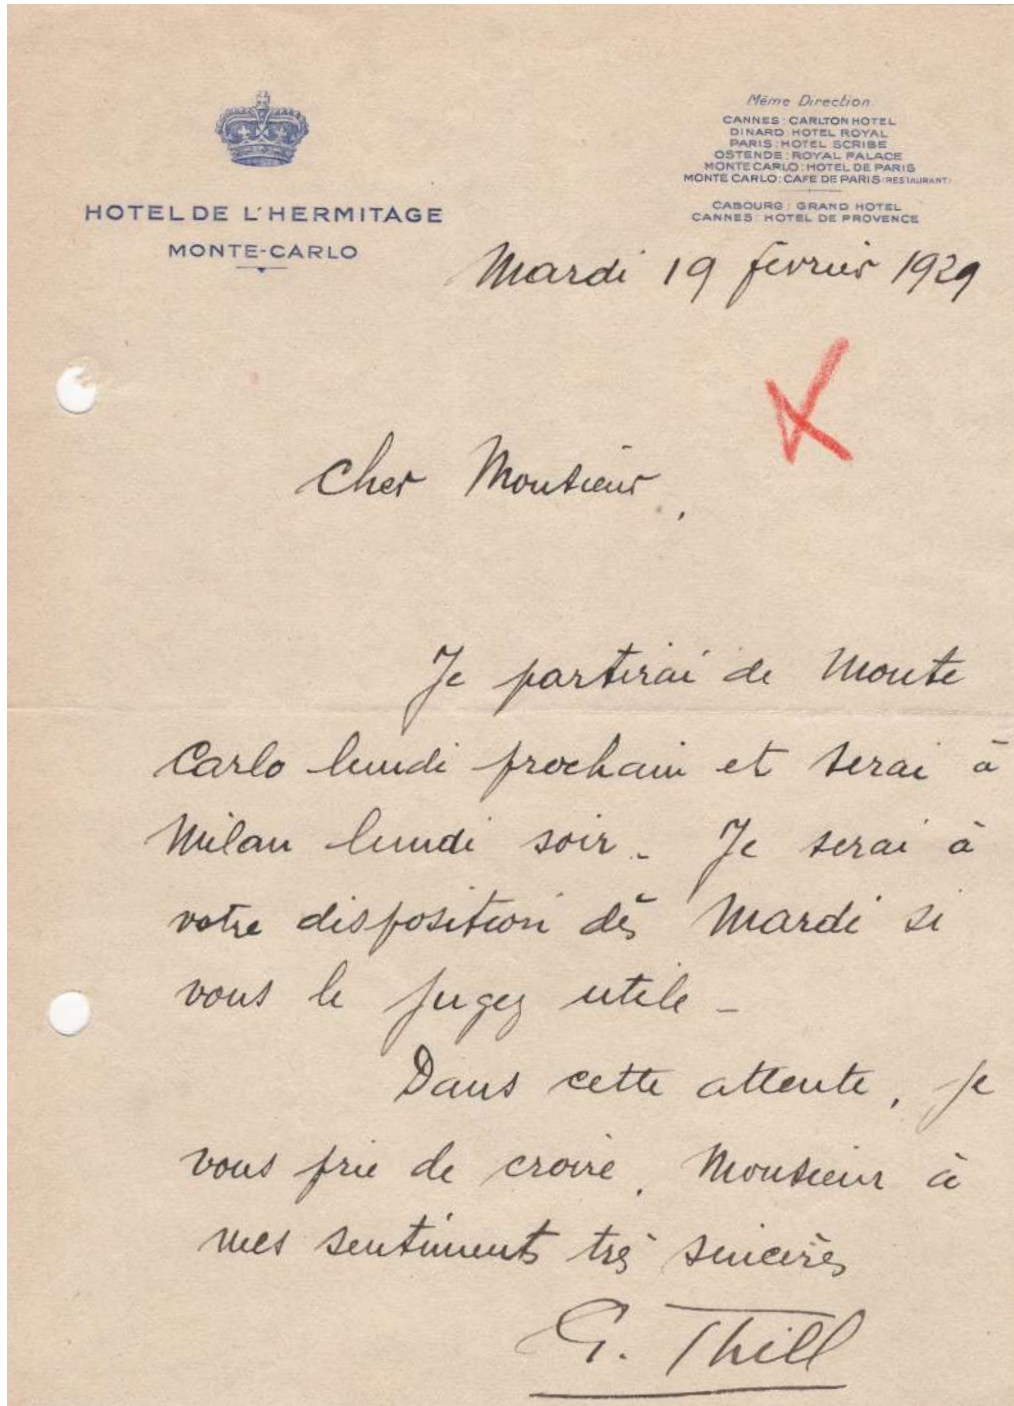 HOTEL DE L'HERMITAGE
MONTE-CARLO
Même Direction
CANNES : CARLTON HOTEL
DINARD : HOTEL ROYAL
PARIS : HOTEL SCRIBE
OSTENDE : ROYAL PALACE
MONTE CARLO : HOTEL DE PARIS
MONTE CARLO : CAFE DE PARIS (RESTAURANT)
CABOURG : GRAND HOTEL
CANNES : HOTEL DE PROVENCE
Mardi 19 février 1929
Cher Monsieur,
Je partirai de Monte
Carlo lundi prochain et serai à
Milan lundi soir. Je serai à
votre disposition dès Mardi si
vous le jugez utile -
Dans cette attente, je
vous prie de croire, Monsieur à
mes sentiments très sincères
G. Thill